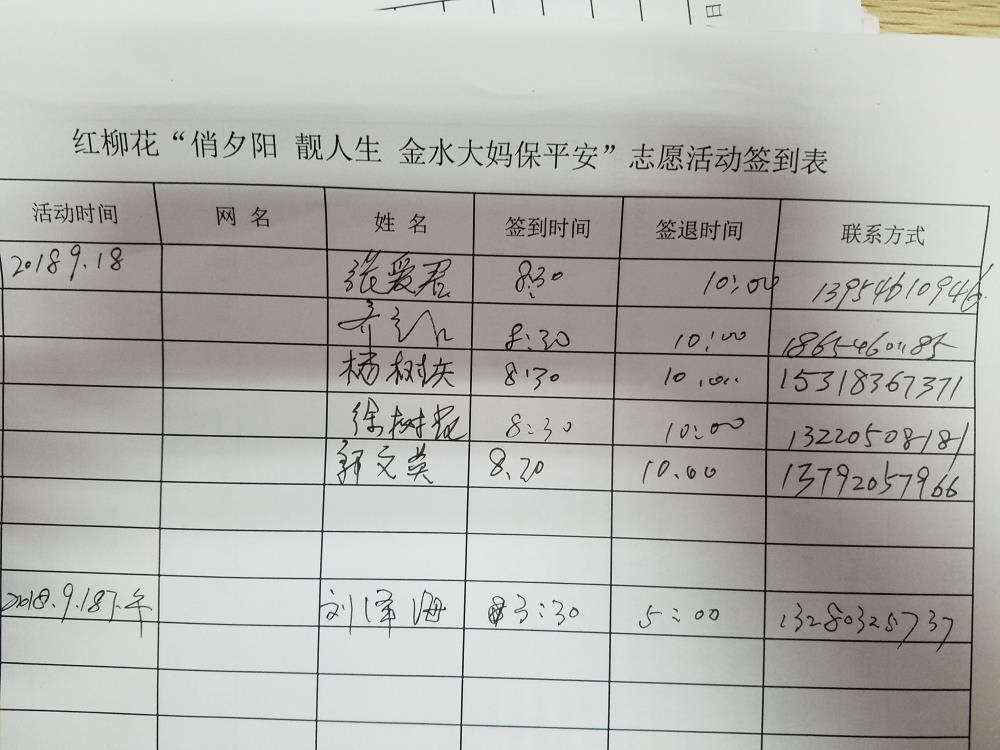 日
红柳花“俏夕阳 靓人生 金水大妈保平安”志愿活动签到表
活动时间 网 名 姓 名 签到时间 签退时间 联系方式
2018 9.18 张爱君 8:30 10:00 13954610946
齐 8:30 10:00
杨树 8:30 10:00 15318367371
徐树 8:30 10:00 13220508181
郭文英 8.20 10.00 13792057966
2018.9.18下午 刘泽海 3:30 5:00 13280325737